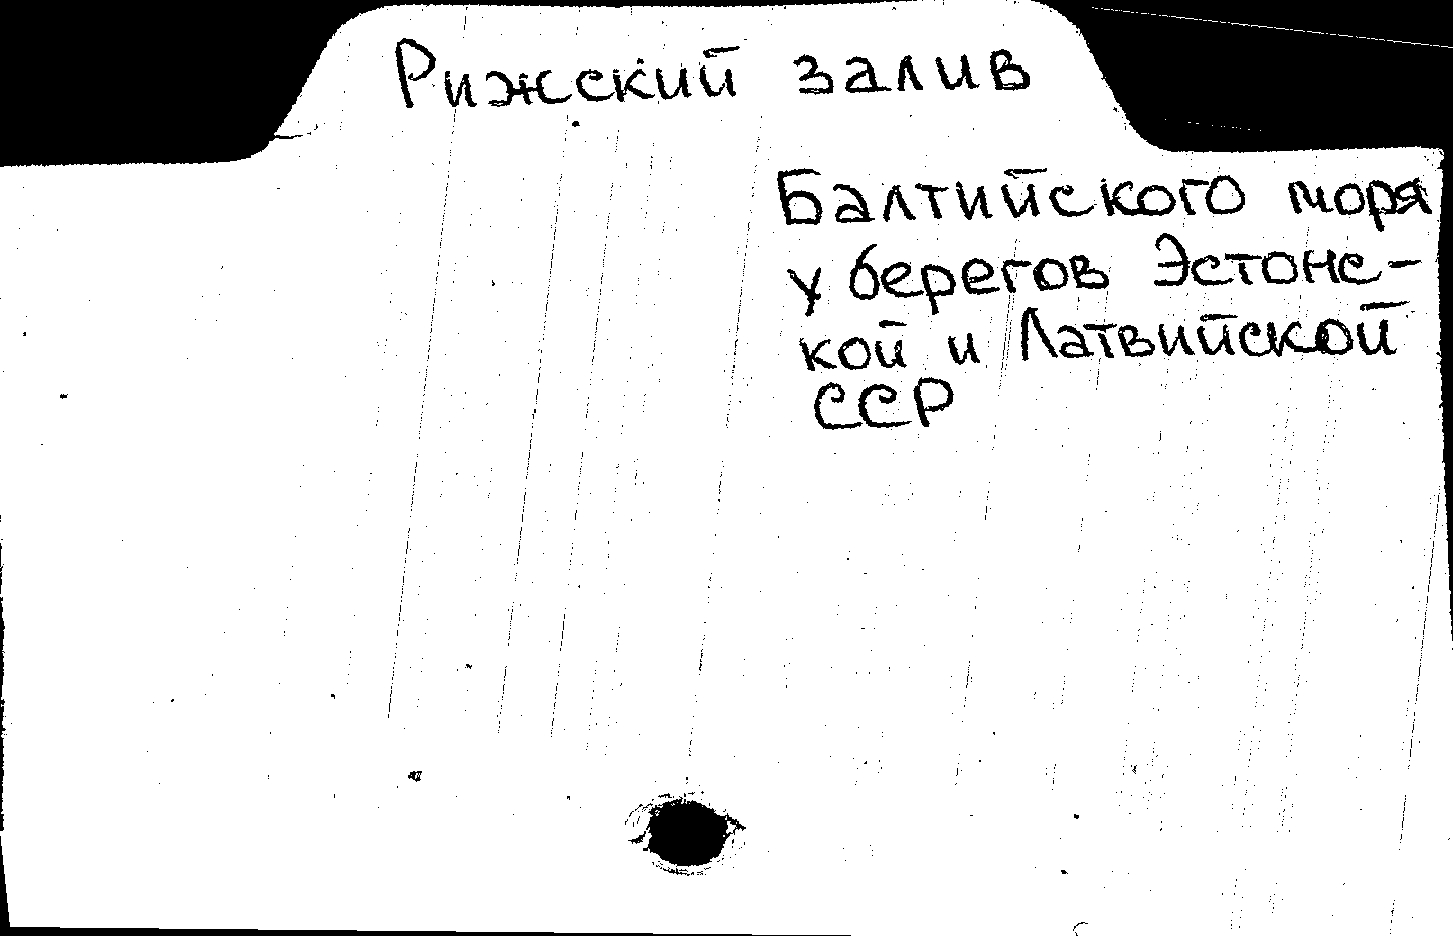 Рижский залив
Балтийского моря
у берегов Эстонс-
кой и Латвийской
ССР